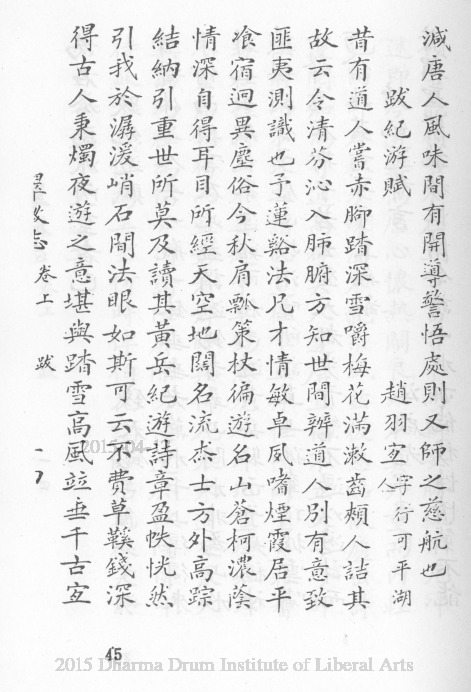 減唐人風味間有開導警悟處則又師之慈航也
跋紀游賦　趙羽宜字行可平湖人
昔有道人嘗赤腳踏深雪嚼梅花滿漱齒頰人詰其
故云令清芬沁入肺腑方知世間辦道人別有意致
匪夷測識也予蓮谿法兄才情敏卓夙嗜煙霞居平
飡宿迥異塵俗今秋肩瓢策杖徧遊名山蒼柯濃蔭
情深自得耳目所經天空地闊名流杰士方外高踪
結納引重世所莫及讀其黃岳紀遊詩章盈帙恍然
引我於潺湲峭石間法眼如斯可云不費草鞵錢深
得古人秉燭夜遊之意堪與踏雪高風竝垂千古宜
卷上　跋
45
2015-04-13
2015 Dharma Drum Institute of Liberal Arts